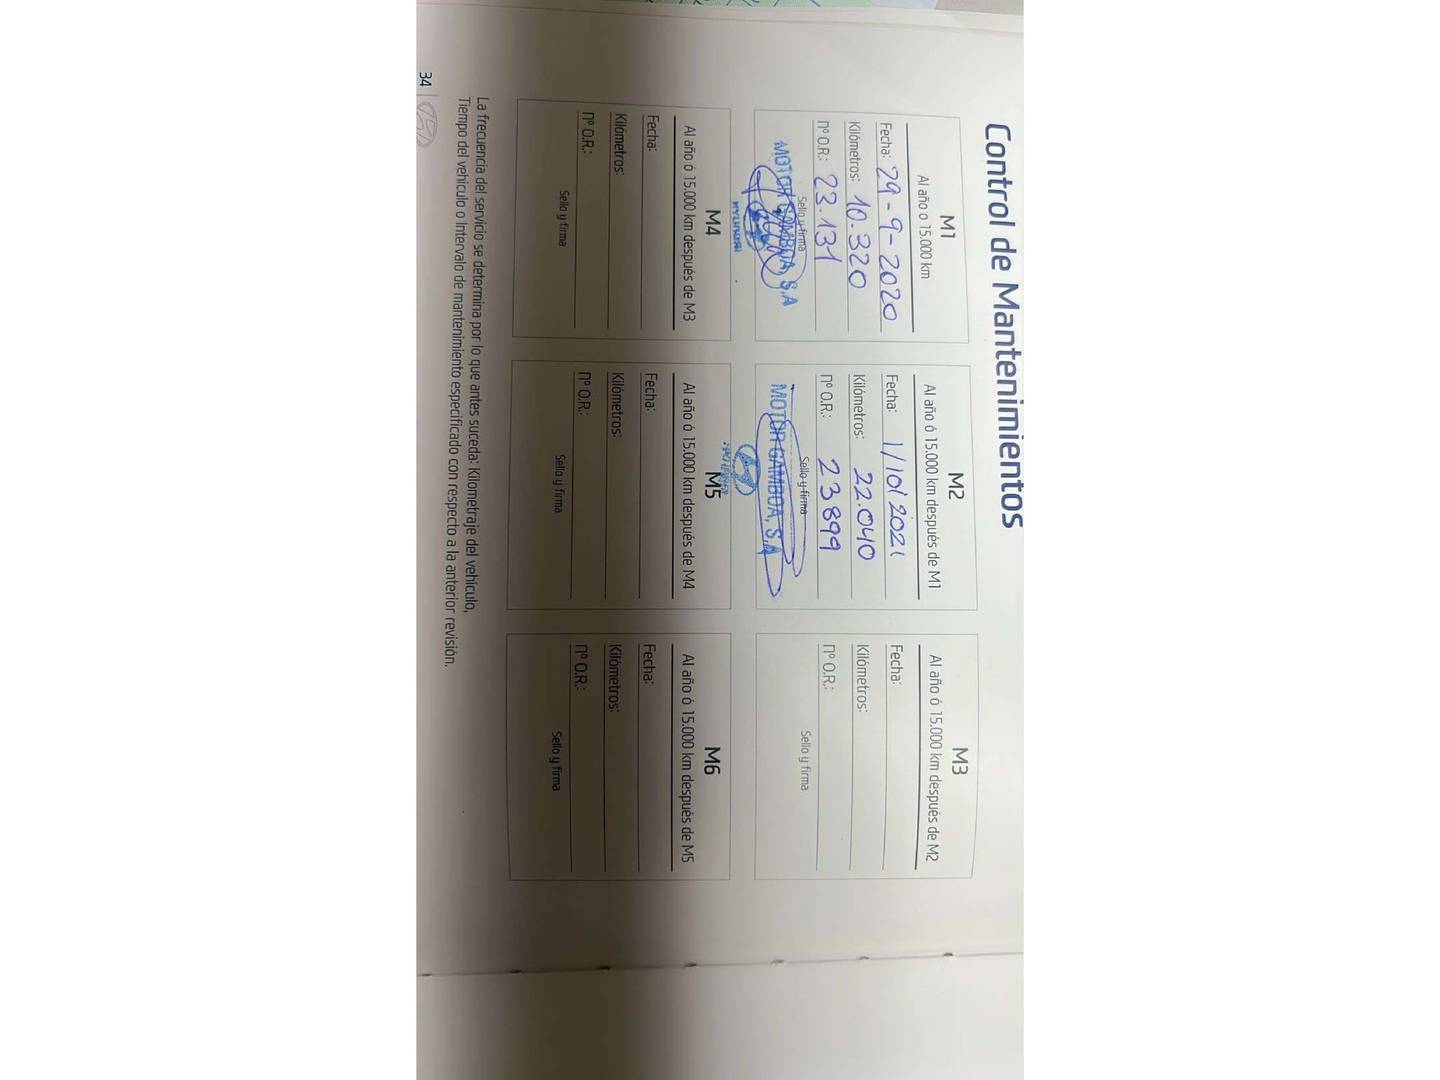 Control de Mantenimientos
M1
Al año o 15.000 km
Fecha: 29-9-2020
Kilómetros: 10.320
nº O.R.: 23.131
Sello y firma
MOTOR GAMBOA, S.A
HYUNDAI
M2
Al año ó 15.000 km después de M1
Fecha: 1/10/2021
Kilómetros: 22.040
nº O.R.: 23899
Sello y firma
MOTOR GAMBOA, S.A
M3
Al año ó 15.000 km después de M2
Fecha:
Kilómetros:
nº O.R.:
Sello y firma
M4
Al año ó 15.000 km después de M3
Fecha:
Kilómetros:
nº O.R.:
Sello y firma
M5
Al año ó 15.000 km después de M4
Fecha:
Kilómetros:
nº O.R.:
Sello y firma
M6
Al año ó 15.000 km después de M5
Fecha:
Kilómetros:
nº O.R.:
Sello y firma
La frecuencia del servicio se determina por lo que antes suceda: Kilometraje del vehículo,
Tiempo del vehículo o Intervalo de mantenimiento especificado con respecto a la anterior revisión.
34